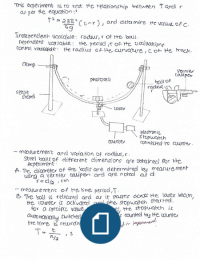 This experiment is to test the relationship between T and r
as per the equation:
T² = 28π²/5g (C-r), and determine the value of C.
Independent variable: radius, r of the ball.
Dependent variable: the period, T of the oscillations
Control variable: the radius of the curvature, C of the track.
clamp
vernier
caliper
ball of
radius r
laser
counter
electronic
stopwatch
connected to counter.
- measurement and variation of radius, r.
Steel balls of different dimensions are obtained for the
experiment
A. The diameter of the balls are determined by measurement
using a vernier caliper and are noted as d
r = d/2, cm
- measurement of the time period, T
B. The ball is released and as it passes across the laser beam,
the counter is activated and the stopwatch started.
for a specific value
the stopwatch is
automatically switched
counted by the counter
the time is recorded
T = t/n/2, s